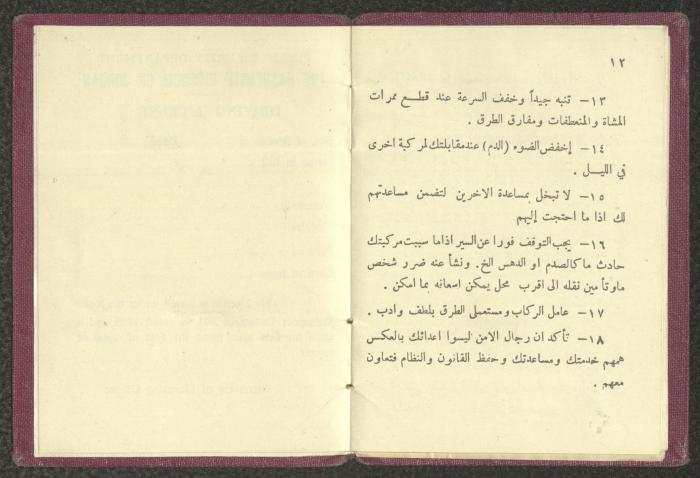 ١٢
١٣– تنبه جيداً وخفف السرعة عند قطع ممرات
المشاة والمنعطفات ومفارق الطرق .
١٤– إخفض الضوء (الدم) عندمقابلتك لمركبة اخرى
في الليل .
١٥– لا تبخل بمساعدة الاخرين لتضمن مساعدتهم
لك اذا ما احتجت إليهم
١٦– يجب التوقف فورا عن السير اذاما سببت مركبتك
حادث ما كالصدم او الدهس الخ. ونشأ عنه ضرر شخص
ما وتأمين نقله الى اقرب محل يمكن اسعافه بما امكن .
١٧– عامل الركاب ومستعملي الطرق بلطف وادب .
١٨– تأكد ان رجال الامن ليسوا اعدائك بالعكس
همهم خدمتك ومساعدتك وحفظ القانون والنظام فتعاون
معهم .